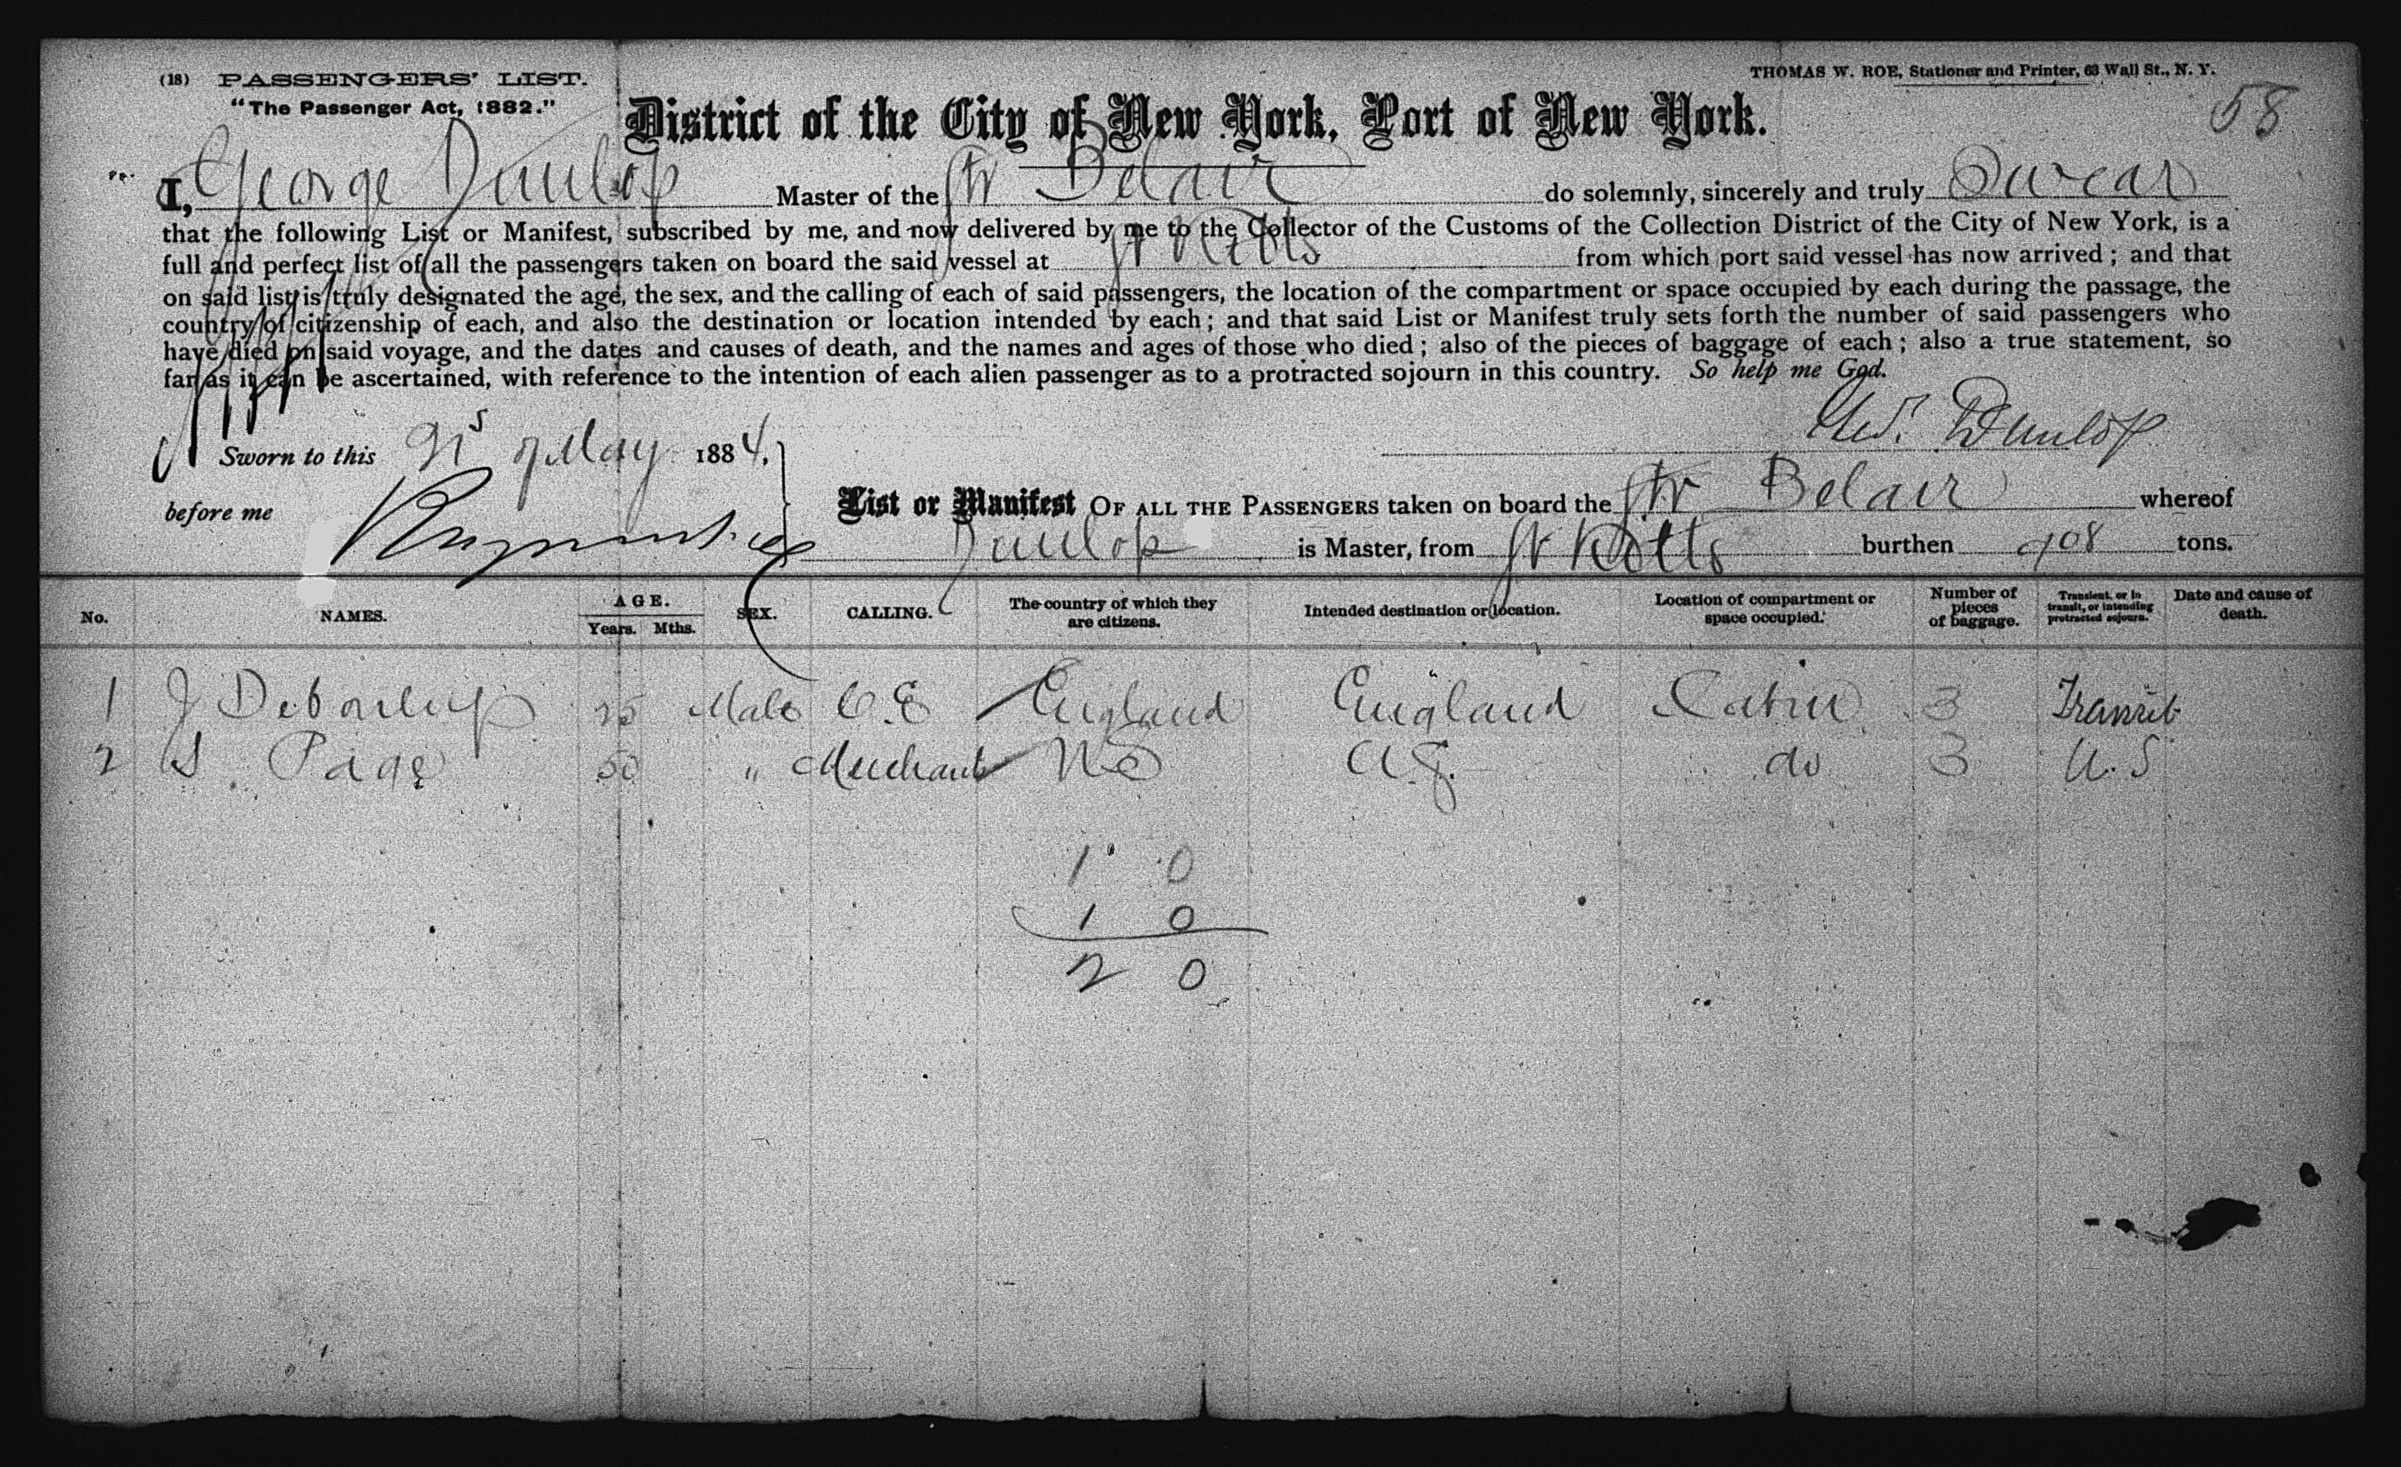 (18) PASSENGERS' LIST.
"The Passenger Act, 1882."
THOMAS W. ROE, Stationer and Printer, 63 Wall St., N. Y.
58
District of the City of New York, Port of New York.
I, George Dunlop Master of the Str Belair do solemnly, sincerely and truly Swear
that the following List or Manifest, subscribed by me, and now delivered by me to the Collector of the Customs of the Collection District of the City of New York, is a
full and perfect list of all the passengers taken on board the said vessel at St Kitts from which port said vessel has now arrived; and that
on said list is truly designated the age, the sex, and the calling of each of said passengers, the location of the compartment or space occupied by each during the passage, the
country of citizenship of each, and also the destination or location intended by each; and that said List or Manifest truly sets forth the number of said passengers who
have died on said voyage, and the dates and causes of death, and the names and ages of those who died; also of the pieces of baggage of each; also a true statement, so
far as it can be ascertained, with reference to the intention of each alien passenger as to a protracted sojourn in this country. So help me God.
Geo. Dunlop
Sworn to this of May 1884,
before me
List or Manifest OF ALL THE PASSENGERS taken on board the Str Belair whereof
Dunlop is Master, from St Kitts burthen 908 tons.
No. NAMES. AGE. Years. Mths. SEX. CALLING. The country of which they are citizens. Intended destination or location. Location of compartment or space occupied. Number of pieces of baggage. Transient, or in transit, or intending protracted sojourn. Date and cause of death.
1 J 25 Male C.E England England Cabin 3 Transit
2 S. Page 50 " Merchant US do 3 U.S
1 0
1 0
2 0